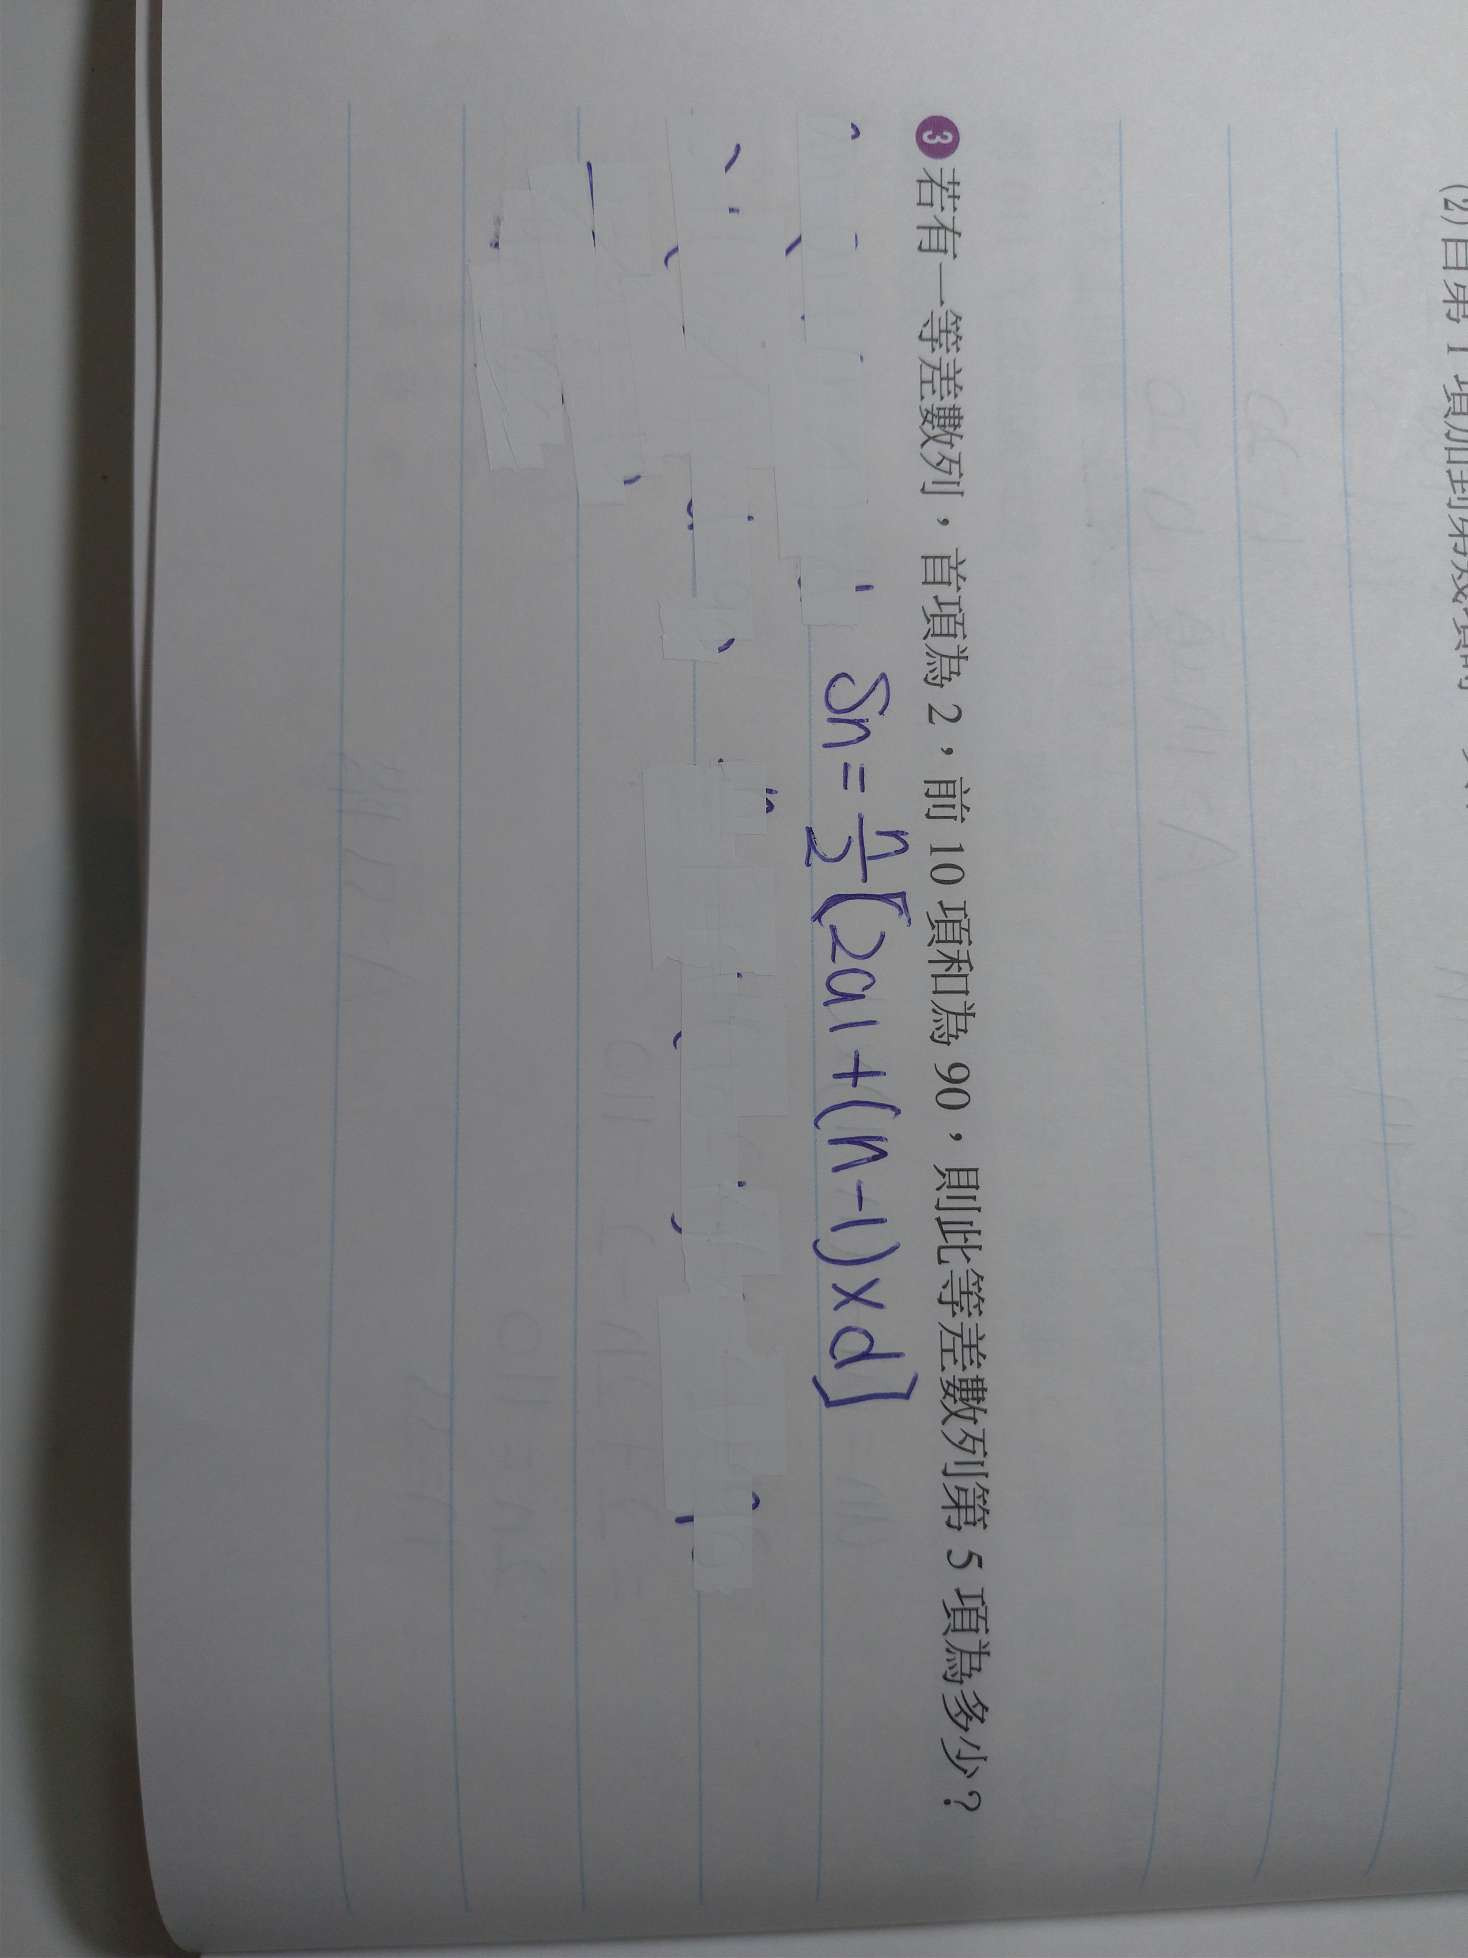 (2)自第 1 項加到第幾項的
❸若有一等差數列，首項為 2，前 10 項和為 90，則此等差數列第 5 項為多少？
Sn = n/2 [2a1+(n-1)xd]